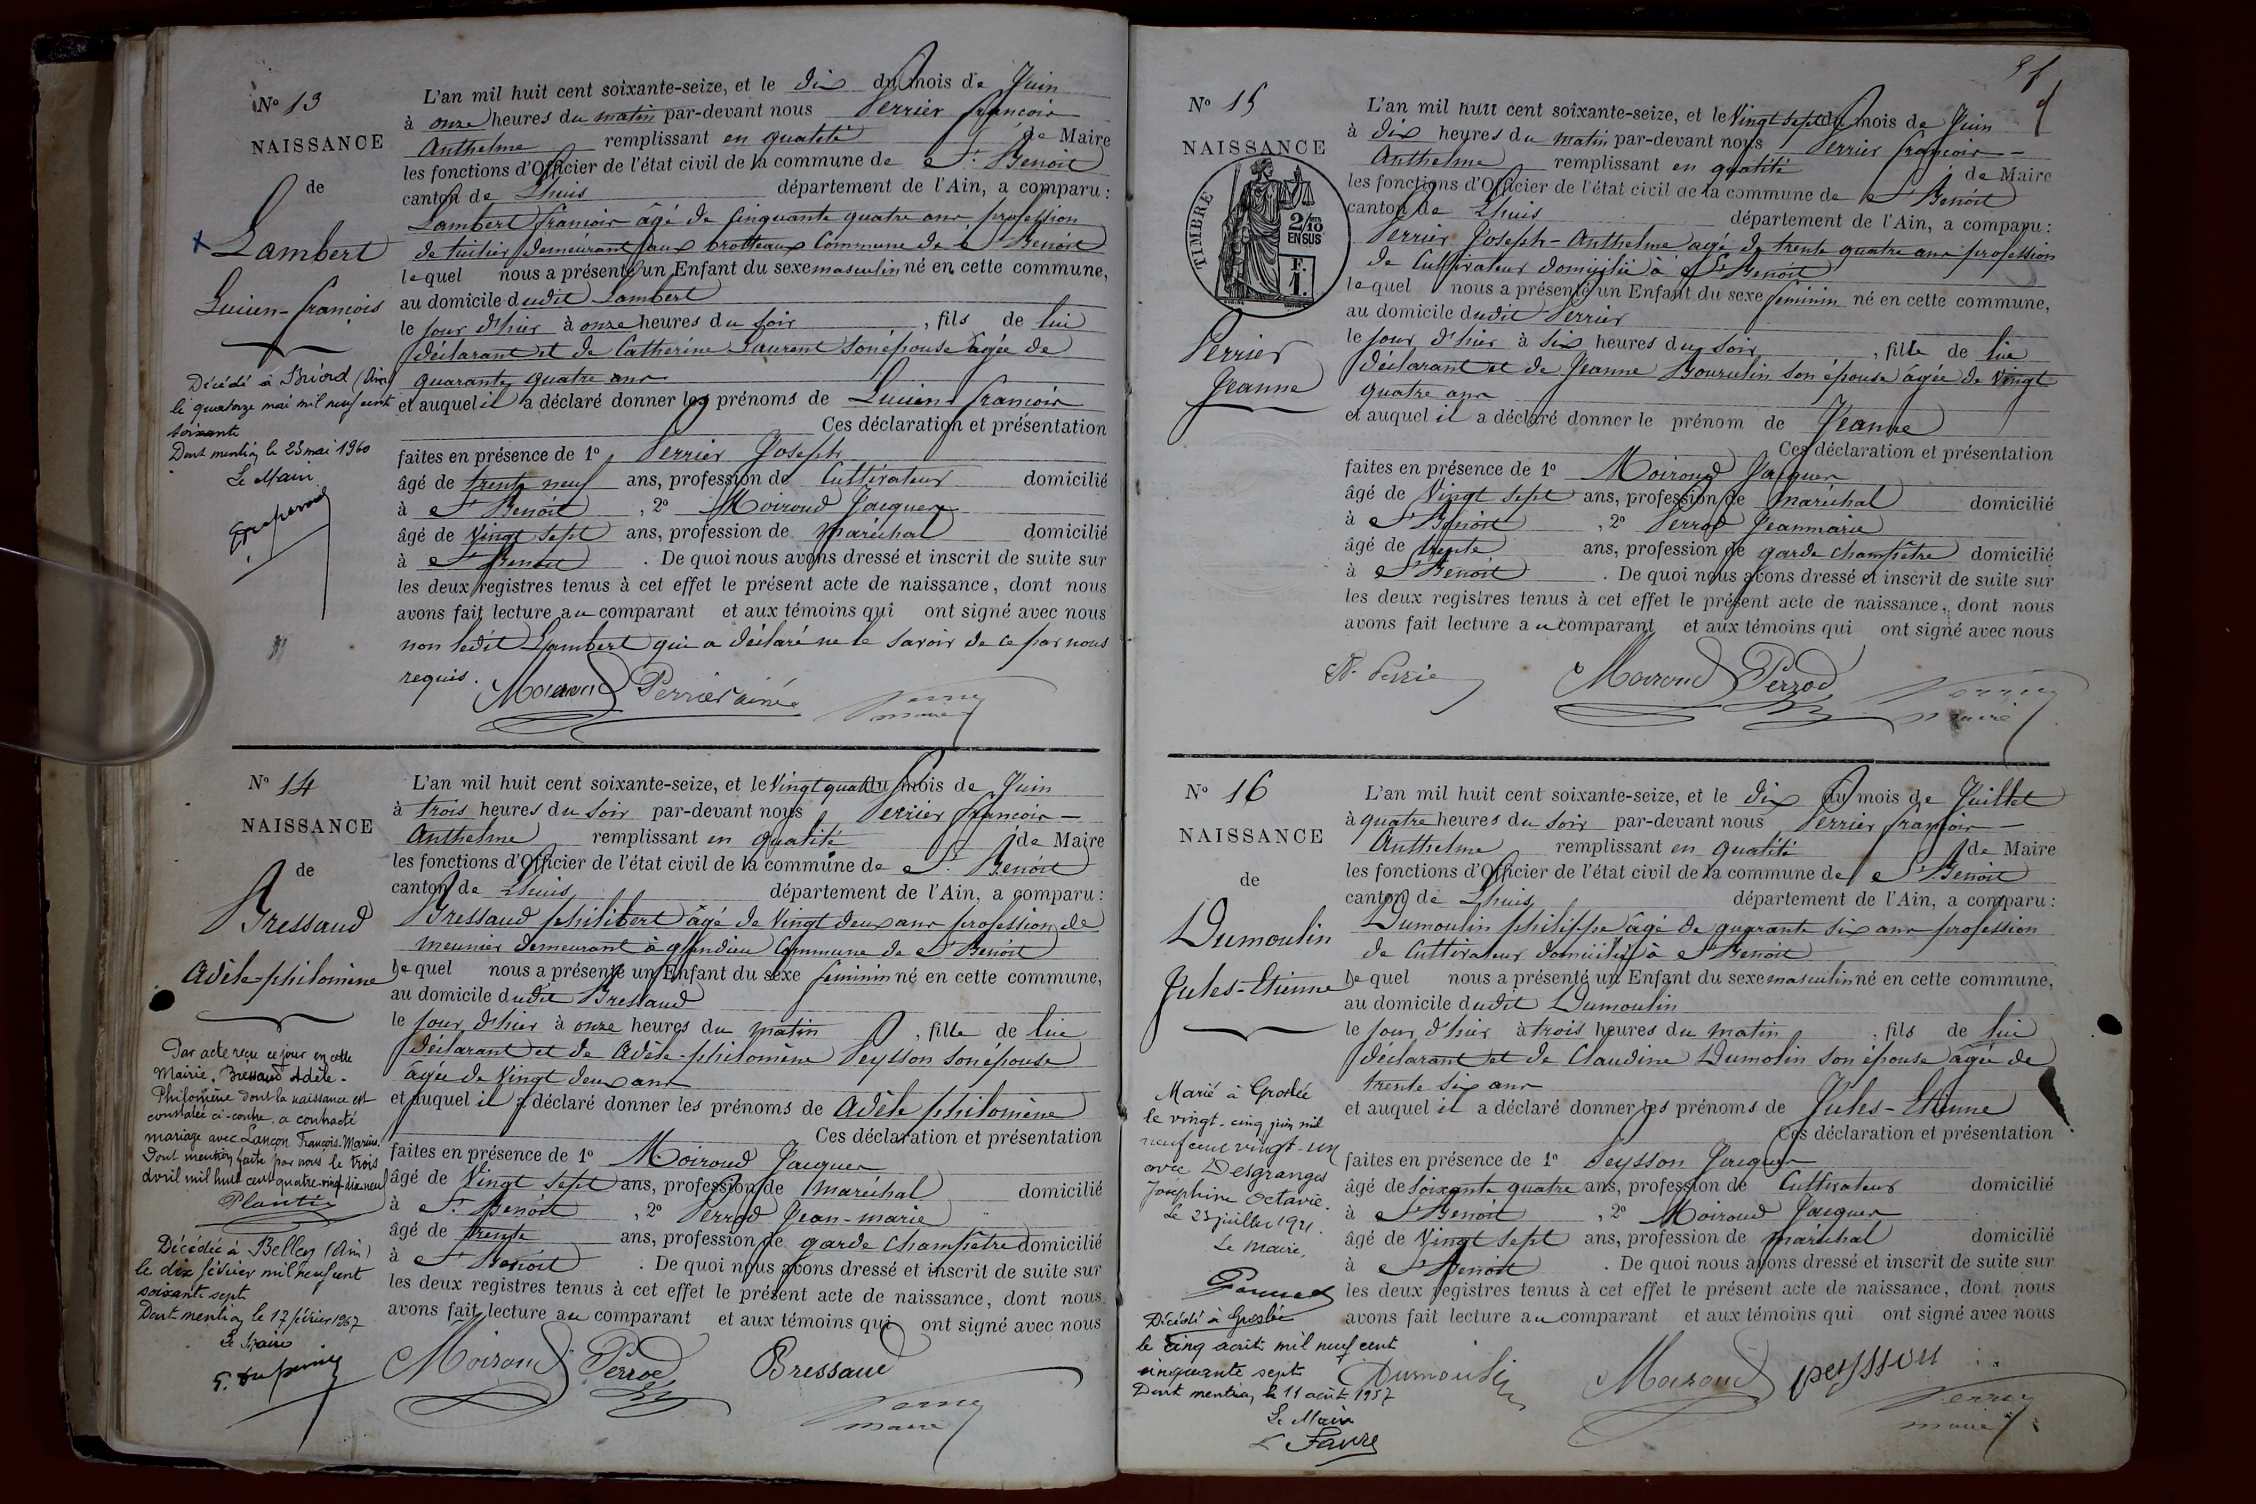 Nº 13
NAISSANCE
de
Lambert
Lucien-françois
Décédé à Briord (Ain)
le quatorze mai mil neuf cent
soixante
Dont mention le 23 mai 1960
Le Maire
L'an mil huit cent soixante-seize, et le dix du mois de Juin
à onze heures du matin par-devant nous Perrier françois
Anthelme remplissant en qualité de Maire
les fonctions d'Officier de l'état civil de la commune de St. Benoît
canton de Lhuis département de l'Ain, a comparu :
Lambert françois âgé de Cinquante quatre ans profession
de tuilier demeurant aux brotteaux Commune de St Benoît
lequel nous a présenté un Enfant du sexe masculin né en cette commune,
au domicile dudit Lambert
le jour d'hier à onze heures du soir, fils de lui
déclarant et de Catherine Laurent son épouse âgée de
quarante quatre ans
et auquel il a déclaré donner les prénoms de Lucien françois
Ces déclaration et présentation
faites en présence de 1º Perrier Joseph
âgé de trente neuf ans, profession de Cultivateur domicilié
à St Benoît, 2º Moiroud Jacques
âgé de Vingt sept ans, profession de maréchal domicilié
à St Benoît. De quoi nous avons dressé et inscrit de suite sur
les deux registres tenus à cet effet le présent acte de naissance, dont nous
avons fait lecture au comparant et aux témoins qui ont signé avec nous
non ledit Lambert qui a déclaré ne le savoir de ce par nous
requis.
Moiroud Perrier ainé Perrier
maire
Nº 14
NAISSANCE
de
Bressaud
Adèle-philomène
Par acte reçu ce jour en cette
Mairie, Bressaud Adèle-
Philomène dont la naissance est
constatée ci-contre, a contracté
mariage avec Lançon François-Marius.
Dont mention faite par nous le trois
avril mil huit cent quatre-vingt-dix-neuf
Plantin
Décédée à Belley (Ain)
le dix février mil neuf cent
soixante sept
Dont mention le 17 février 1967
Le Maire
L'an mil huit cent soixante-seize, et le Vingt quatre du mois de Juin
à trois heures du soir par-devant nous Perrier françois-
Anthelme remplissant en qualité de Maire
les fonctions d'Officier de l'état civil de la commune de St. Benoît
canton de Lhuis département de l'Ain, a comparu :
Bressaud philibert âgé de Vingt deux ans profession de
meunier demeurant à glandieu Commune de St Benoît
lequel nous a présenté un Enfant du sexe féminin né en cette commune,
au domicile dudit Bressaud
le jour d'hier à onze heures du matin, fille de lui
déclarant et de Adèle-philomène Peysson son épouse
âgée de Vingt deux ans
et auquel il a déclaré donner les prénoms de Adèle philomène
Ces déclaration et présentation
faites en présence de 1º Moiroud Jacques
âgé de Vingt sept ans, profession de maréchal domicilié
à St. Benoît, 2º Perrod Jean-marie
âgé de trente ans, profession de garde champêtre domicilié
à St Benoît. De quoi nous avons dressé et inscrit de suite sur
les deux registres tenus à cet effet le présent acte de naissance, dont nous
avons fait lecture au comparant et aux témoins qui ont signé avec nous
Moiroud Perrod Bressaud Perrier
maire
Nº 15
NAISSANCE
TIMBRE
2/10
EN SUS
F.
1.
Perrier
Jeanne
L'an mil huit cent soixante-seize, et le Vingt sept du mois de Juin
à dix heures du matin par-devant nous Perrier françois-
Anthelme remplissant en qualité de Maire
les fonctions d'Officier de l'état civil de la commune de St Benoît
canton de Lhuis département de l'Ain, a comparu :
Perrier Joseph-Anthelme âgé de trente quatre ans profession
de Cultivateur domicilié à St Benoît
lequel nous a présenté un Enfant du sexe féminin né en cette commune,
au domicile dudit Perrier
le jour d'hier à six heures du soir, fille de lui
déclarant et de Jeanne Bourulin son épouse âgée de Vingt
quatre ans
et auquel il a déclaré donner le prénom de Jeanne
Ces déclaration et présentation
faites en présence de 1º Moiroud Jacques
âgé de Vingt sept ans, profession de maréchal domicilié
à St Benoît, 2º Perrod Jeanmarie
âgé de trente ans, profession de garde champêtre domicilié
à St Benoît. De quoi nous avons dressé et inscrit de suite sur
les deux registres tenus à cet effet le présent acte de naissance, dont nous
avons fait lecture au comparant et aux témoins qui ont signé avec nous
Moiroud Perrod Perrier
maire
Nº 16
NAISSANCE
de
Dumoulin
Jules-Etienne
Marié à Groslée
le vingt-cinq juin mil
neuf cent vingt-un
avec Desgranges
Joséphine Octavie.
Le 23 juillet 1921.
Le Maire,
Décédé à Groslée
le cinq août mil neuf cent
cinquante sept
Dont mention, le 11 août 1957
Le Maire
Favre
L'an mil huit cent soixante-seize, et le dix du mois de Juillet
à quatre heures du soir par-devant nous Perrier françois-
Anthelme remplissant en qualité de Maire
les fonctions d'Officier de l'état civil de la commune de St Benoît
canton de Lhuis département de l'Ain, a comparu :
Dumoulin philippe âgé de quarante six ans profession
de Cultivateur domicilié à St Benoît
lequel nous a présenté un Enfant du sexe masculin né en cette commune,
au domicile dudit Dumoulin
le jour d'hier à trois heures du matin, fils de lui
déclarant et de Claudine Dumolin son épouse âgée de
trente six ans
et auquel il a déclaré donner les prénoms de Jules-Etienne
Ces déclaration et présentation
faites en présence de 1º Peysson Jacques
âgé de soixante quatre ans, profession de Cultivateur domicilié
à St Benoît, 2º Moiroud Jacques
âgé de Vingt sept ans, profession de maréchal domicilié
à St Benoît. De quoi nous avons dressé et inscrit de suite sur
les deux registres tenus à cet effet le présent acte de naissance, dont nous
avons fait lecture au comparant et aux témoins qui ont signé avec nous
Dumoulin Moiroud peysson Perrier
maire